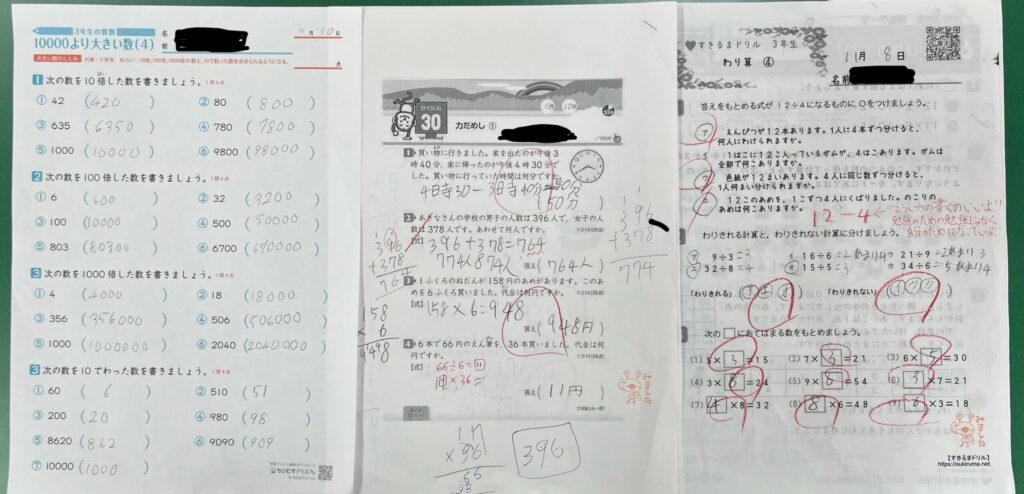 3年生の算数
10000より大きい数(4)
名
前
11月10日
点
1 次の数を10倍した数を書きましょう。1問4点
① 42 (420) ② 80 (800)
③ 635 (6350) ④ 780 (7800)
⑤ 1000 (10000) ⑥ 9800 (98000)
2 次の数を100倍した数を書きましょう。1問4点
① 6 (600) ② 32 (3200)
③ 100 (10000) ④ 500 (50000)
⑤ 803 (80300) ⑥ 6700 (670000)
3 次の数を1000倍した数を書きましょう。1問4点
① 4 (4000) ② 18 (18000)
③ 356 (356000) ④ 506 (506000)
⑤ 1000 (1000000) ⑥ 2040 (2040000)
3 次の数を10でわった数を書きましょう。1問4点
① 60 (6) ② 510 (51)
③ 200 (20) ④ 980 (98)
⑤ 8620 (862) ⑥ 9090 (909)
⑦ 10000 (1000)
ちびむすドリル
かくにん
30
力だめし ①
11月10日
/100点
1 買い物に行きました。家を出たのが午後3
時40分、家に帰ったのが午後4時30分で
した。買い物に行っていた時間は何分ですか。
4時30-3時40分=50分
(50分)
2 あきなさんの学校の男子の人数は396人で、女子の人
数は378人です。あわせて何人ですか。
【式】396+378=764
774人
答え(764人)
396
+378
764
396
+378
774
3 1ふくろのねだんが158円のあめがあります。このあ
めを6ふくろ買いました。代金は何円ですか。
【式】158×6=948
答え(948円)
158
× 6
948
4 6本で66円のえん筆を、36本買いました。代金は何
円ですか。
【式】66÷6=11
11×36=
答え(11円)
みました
396
すきるまドリル 3年生
わり算 ④
11月8日
名前
答えをもとめる式が12÷4になるものに○をつけましょう。
ア えんぴつが12本あります。1人に4本ずつ分けると、
何人にわけられますか。
イ 1はこに12こ入っているガムが、4はこあります。ガムは
全部で何こありますか。
ウ 色紙が12まいあります。4人に同じ数ずつ分けると、
1人何まい分けられますか。
エ 12このあめを、1こずつ4人にくばりました。のこりの
あめは何こありますか。
12-4
わりきれる計算と、わりきれない計算に分けましょう。
ア 9÷3=3 イ 16÷6=2あまり4 ウ 21÷9=2あまり3
エ 32÷8=4 オ 15÷5=3 カ 34÷6=5あまり4
「わりきれる」 「わりきれない」
次の□にあてはまる数をもとめましょう。
(1) 5×3=15 (2) 7×3=21 (3) 6×5=30
(4) 3×8=24 (5) 9×6=54 (6) 3×7=21
(7) 4×8=32 (8) 8×6=48 (9) 6×3=18
みました
【すきるまドリル】
https://sukiruma.net